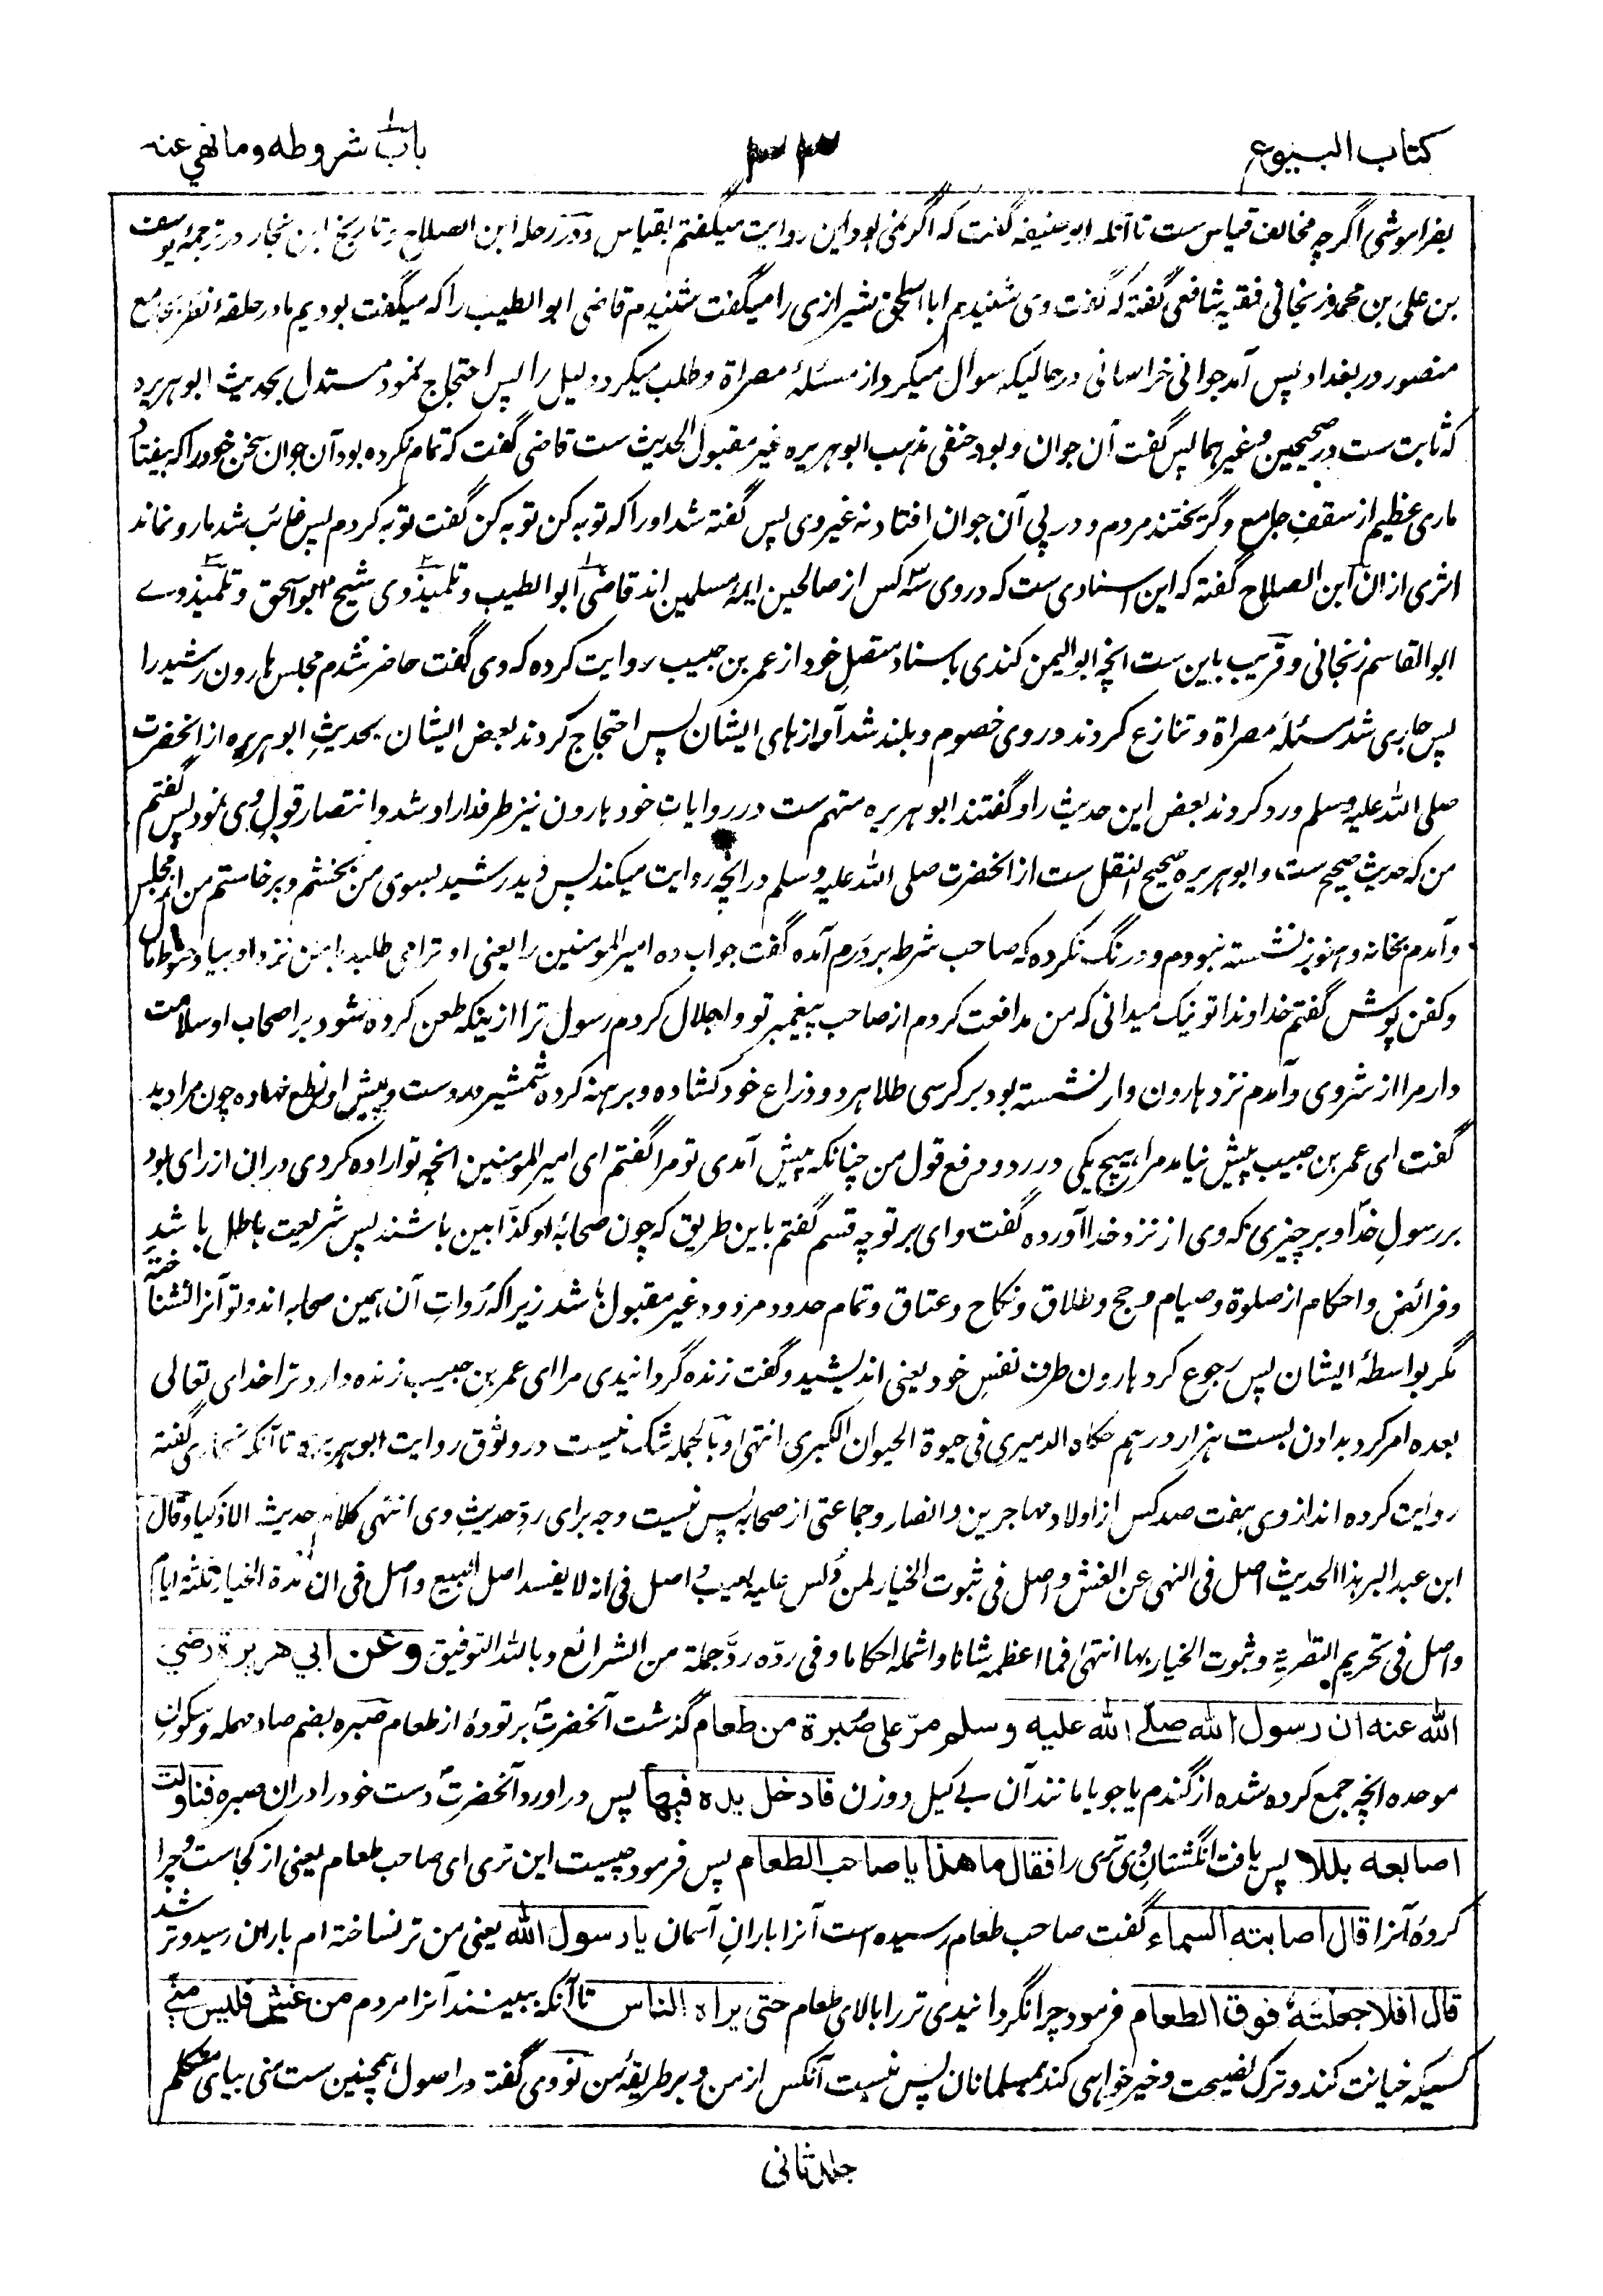 کتاب البیوع
باب شروطه وما نهي عنه
بفراموشی اگرچه مخالف قیاس ست تا آنکه ابوحنیفه گفت که اگر نمی بود این روایت میگفتم بقیاس و در رحله ابن الصلاح و تاریخ ابن نجار در ترجمهٔ یوسف
بن علی بن محمد زنجانی فقیه شافعی گفته که گفت وی شنیدم ابا اسحق شیرازی را میگفت شنیدم قاضی ابو الطیب را که میگفت بودیم ما در حلقه نظر بجامع
منصور در بغداد پس آمد جوانی خراسانی در حالیکه سوال میکرد از مسئلهٔ مصراة و طلب میکرد دلیل را پس احتجاج نمود مستدل بحدیث ابو هریره
که ثابت ست در صحیحین و غیرهما پس گفت آن جوان و بود حنفی مذهب ابو هریره غیر مقبول الحدیث ست قاضی گفت که تمام نکرده بود آن جوان سخن خود را که بیفتاد
ماری عظیم از سقف جامع و گریختند مردم و در پی آن جوان افتاد نه غیر وی پس گفته شد او را که توبه کن توبه کن گفت توبه کردم پس غائب شد مار و نماند
اثری ازان ابن الصلاح گفته که این اسنادی ست که در وی سه کس از صالحین ایمهٔ مسلمین اند قاضی ابو الطیب و تلمیذ وی شیخ ابو اسحق و تلمیذ وے
ابو القاسم زنجانی و قریب باین ست انچه ابو الیمن کندی باسناد متصل خود از عمر بن حبیب روایت کرده که وی گفت حاضر شدم مجلس هارون رشید را
پس جاری شد مسئلهٔ مصراة و تنازع کردند در وی خصوم و بلند شد آوازهای ایشان پس احتجاج کردند بعض ایشان بحدیث ابو هریره از آنحضرت
صلی الله علیه وسلم و رد کردند بعض این حدیث را و گفتند ابو هریره متهم ست در روایات خود هارون نیز طرفدار او شد و انتصار قول وی نمود پس گفتم
من که حدیث صحیح ست و ابو هریره صحیح النقل ست از آنحضرت صلی الله علیه وسلم در انچه روایت میکند پس دید رشید بسوی من بخشم و برخاستم من از مجلس
و آمدم بخانه و هنوز نشسته نبودم و درنگ نکرده که صاحب شرطه بر درم آمده گفت جواب ده امیر المومنین را یعنی او ترا می طلبد با من نزد او بیا و حنوط بمال
و کفن پوش گفتم خداوندا تو نیک میدانی که من مدافعت کردم از صاحب پیغمبر تو و اجلال کردم رسول ترا ازینکه طعن کرده شود بر اصحاب او سلامت
دار مرا از شر وی و آمدم نزد هارون و او نشسته بود بر کرسی طلا هر دو ذراع خود کشاده و برهنه کرده شمشیر در دست و پیش او نطع نهاده چون مرا دید
گفت ای عمر بن حبیب پیش نیامد مرا هیچ یکی در رد و دفع قول من چنانکه پیش آمدی تو مرا گفتم ای امیر المومنین انچه تو اراده کردی دران ازرای بود
بر رسول خدا و بر چیزی که وی از نزد خدا آورده گفت وای بر تو چه قسم گفتم باین طریق که چون صحابهٔ او کذابین باشند پس شریعت باطل باشد
و فرائض و احکام از صلوة و صیام و حج و طلاق و نکاح و عتاق و تمام حدود مردود غیر مقبول باشد زیرا که روات آن همین صحابه اند و تو آنرا نشناخته
مگر بواسطهٔ ایشان پس رجوع کرد هارون طرف نفس خود یعنی اندیشید و گفت زنده گردانیدی مرا ای عمر بن حبیب زنده دارد ترا خدای تعالی
بعده امر کرد بدادن بست هزار درهم حکاه الدمیری فی حیوة الحیوان الکبری انتهی و بالجمله شک نیست در وثوق روایت ابو هریره تا آنکه بخاری گفته
روایت کرده اند از وی هفت صد کس از اولاد مهاجرین و انصار و جماعتی از صحابه پس نیست وجه برای رد حدیث وی انتهی کلام حدیث الاذکیا و قال
ابن عبد البر هذا الحدیث اصل فی النهی عن الغش و اصل فی ثبوت الخیار لمن دلس علیه بعیب و اصل فی انه لا یفسد اصل البیع و اصل فی ان مدة الخیار ثلثة ایام
و اصل فی تحریم التصریة و ثبوت الخیار بها انتهی فما اعظمه شانا و اشمله احکاما و فی رده رد جملة من الشرائع و بالله التوفیق وعن ابي هريرة رضي
الله عنه ان رسول الله صلے الله عليه وسلم مرّ على صُبرة من طعام گذشت آنحضرت بر تودهٔ از طعام صبره بضم صاد مهمله و سکون
موحده انچه جمع کرده شده از گندم یا جو یا مانند آن بے کیل و وزن فادخل يده فيها پس در اورد آنحضرت دست خود را دران صبره فنالت
اصابعه بللا پس یافت انگشتان وی تری را فقال ما هذا يا صاحب الطعام پس فرمود چیست این تری ای صاحب طعام یعنی از کجاست و چرا
کردهٔ آنرا قال اصابته السماء گفت صاحب طعام رسیده است آنرا باران آسمان يا رسول الله یعنی من تر نساخته ام باران رسید و تر شد
قال افلا جعلته فوق الطعام فرمود چرا نگردانیدی تر را بالای طعام حتى يراه الناس تا آنکه ببینند آنرا مردم من غش فليس منّي
کسیکه خیانت کند و ترک نصیحت و خیر خواهی کند بمسلمانان پس نیست آنکس از من و بر طریقهٔ من نووی گفته در اصول همچنین ست منی بیای متکلم
جلد ثانی